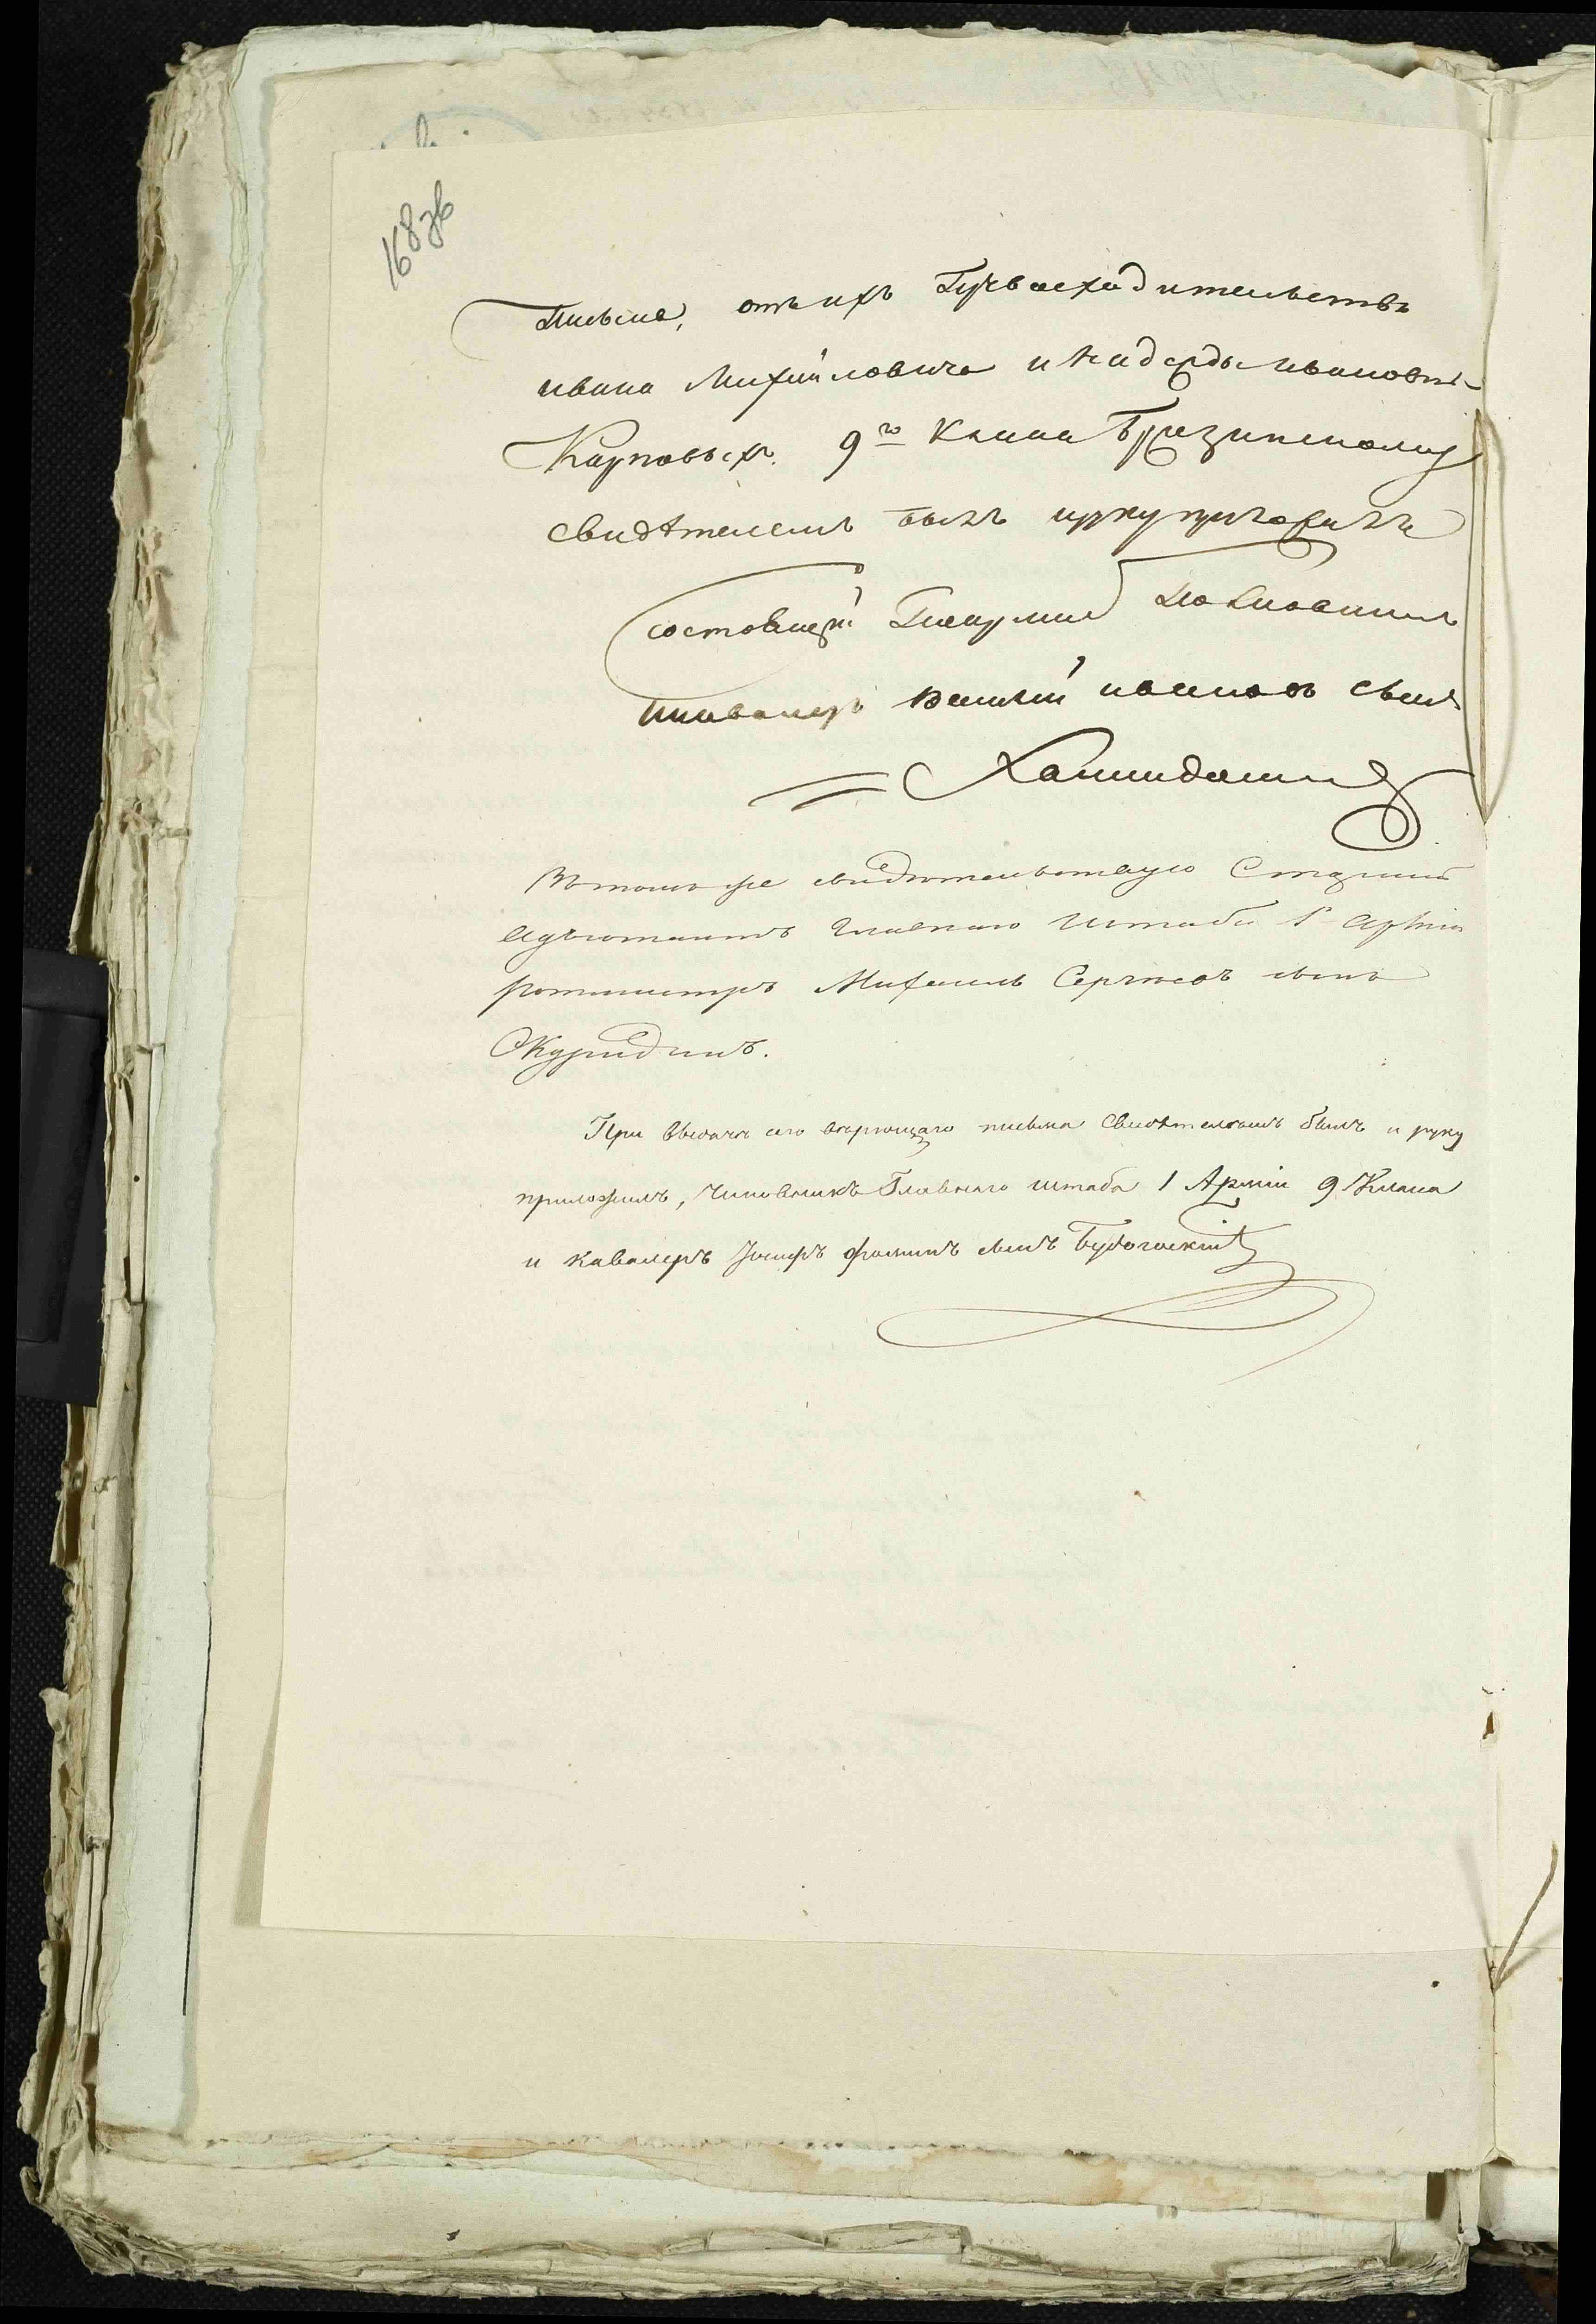 168 зв
письма, отъ ихъ Превосходительствъ
ивана Михайловича и Надежды ивановны
Карповыхъ. 9го класса
свидѣтелемъ былъ ируку приложилъ
состоящій Поарміи Полковникъ
икавалеръ Василий ивановъ сынъ
Втомъ же свидѣтельствую Старшій
Адъютантъ Главнаго Штаба 1й Арміи
ротмистръ Михаилъ Сергѣевъ сынъ
При выдачѣ сего вѣрющаго письма свидѣтелемъ былъ и руку
приложилъ, Чиновникъ Главнаго штаба 1 Арміи 9 Класа
и кавалеръ Іосифъ Фоминъ сынъ Будогоскій